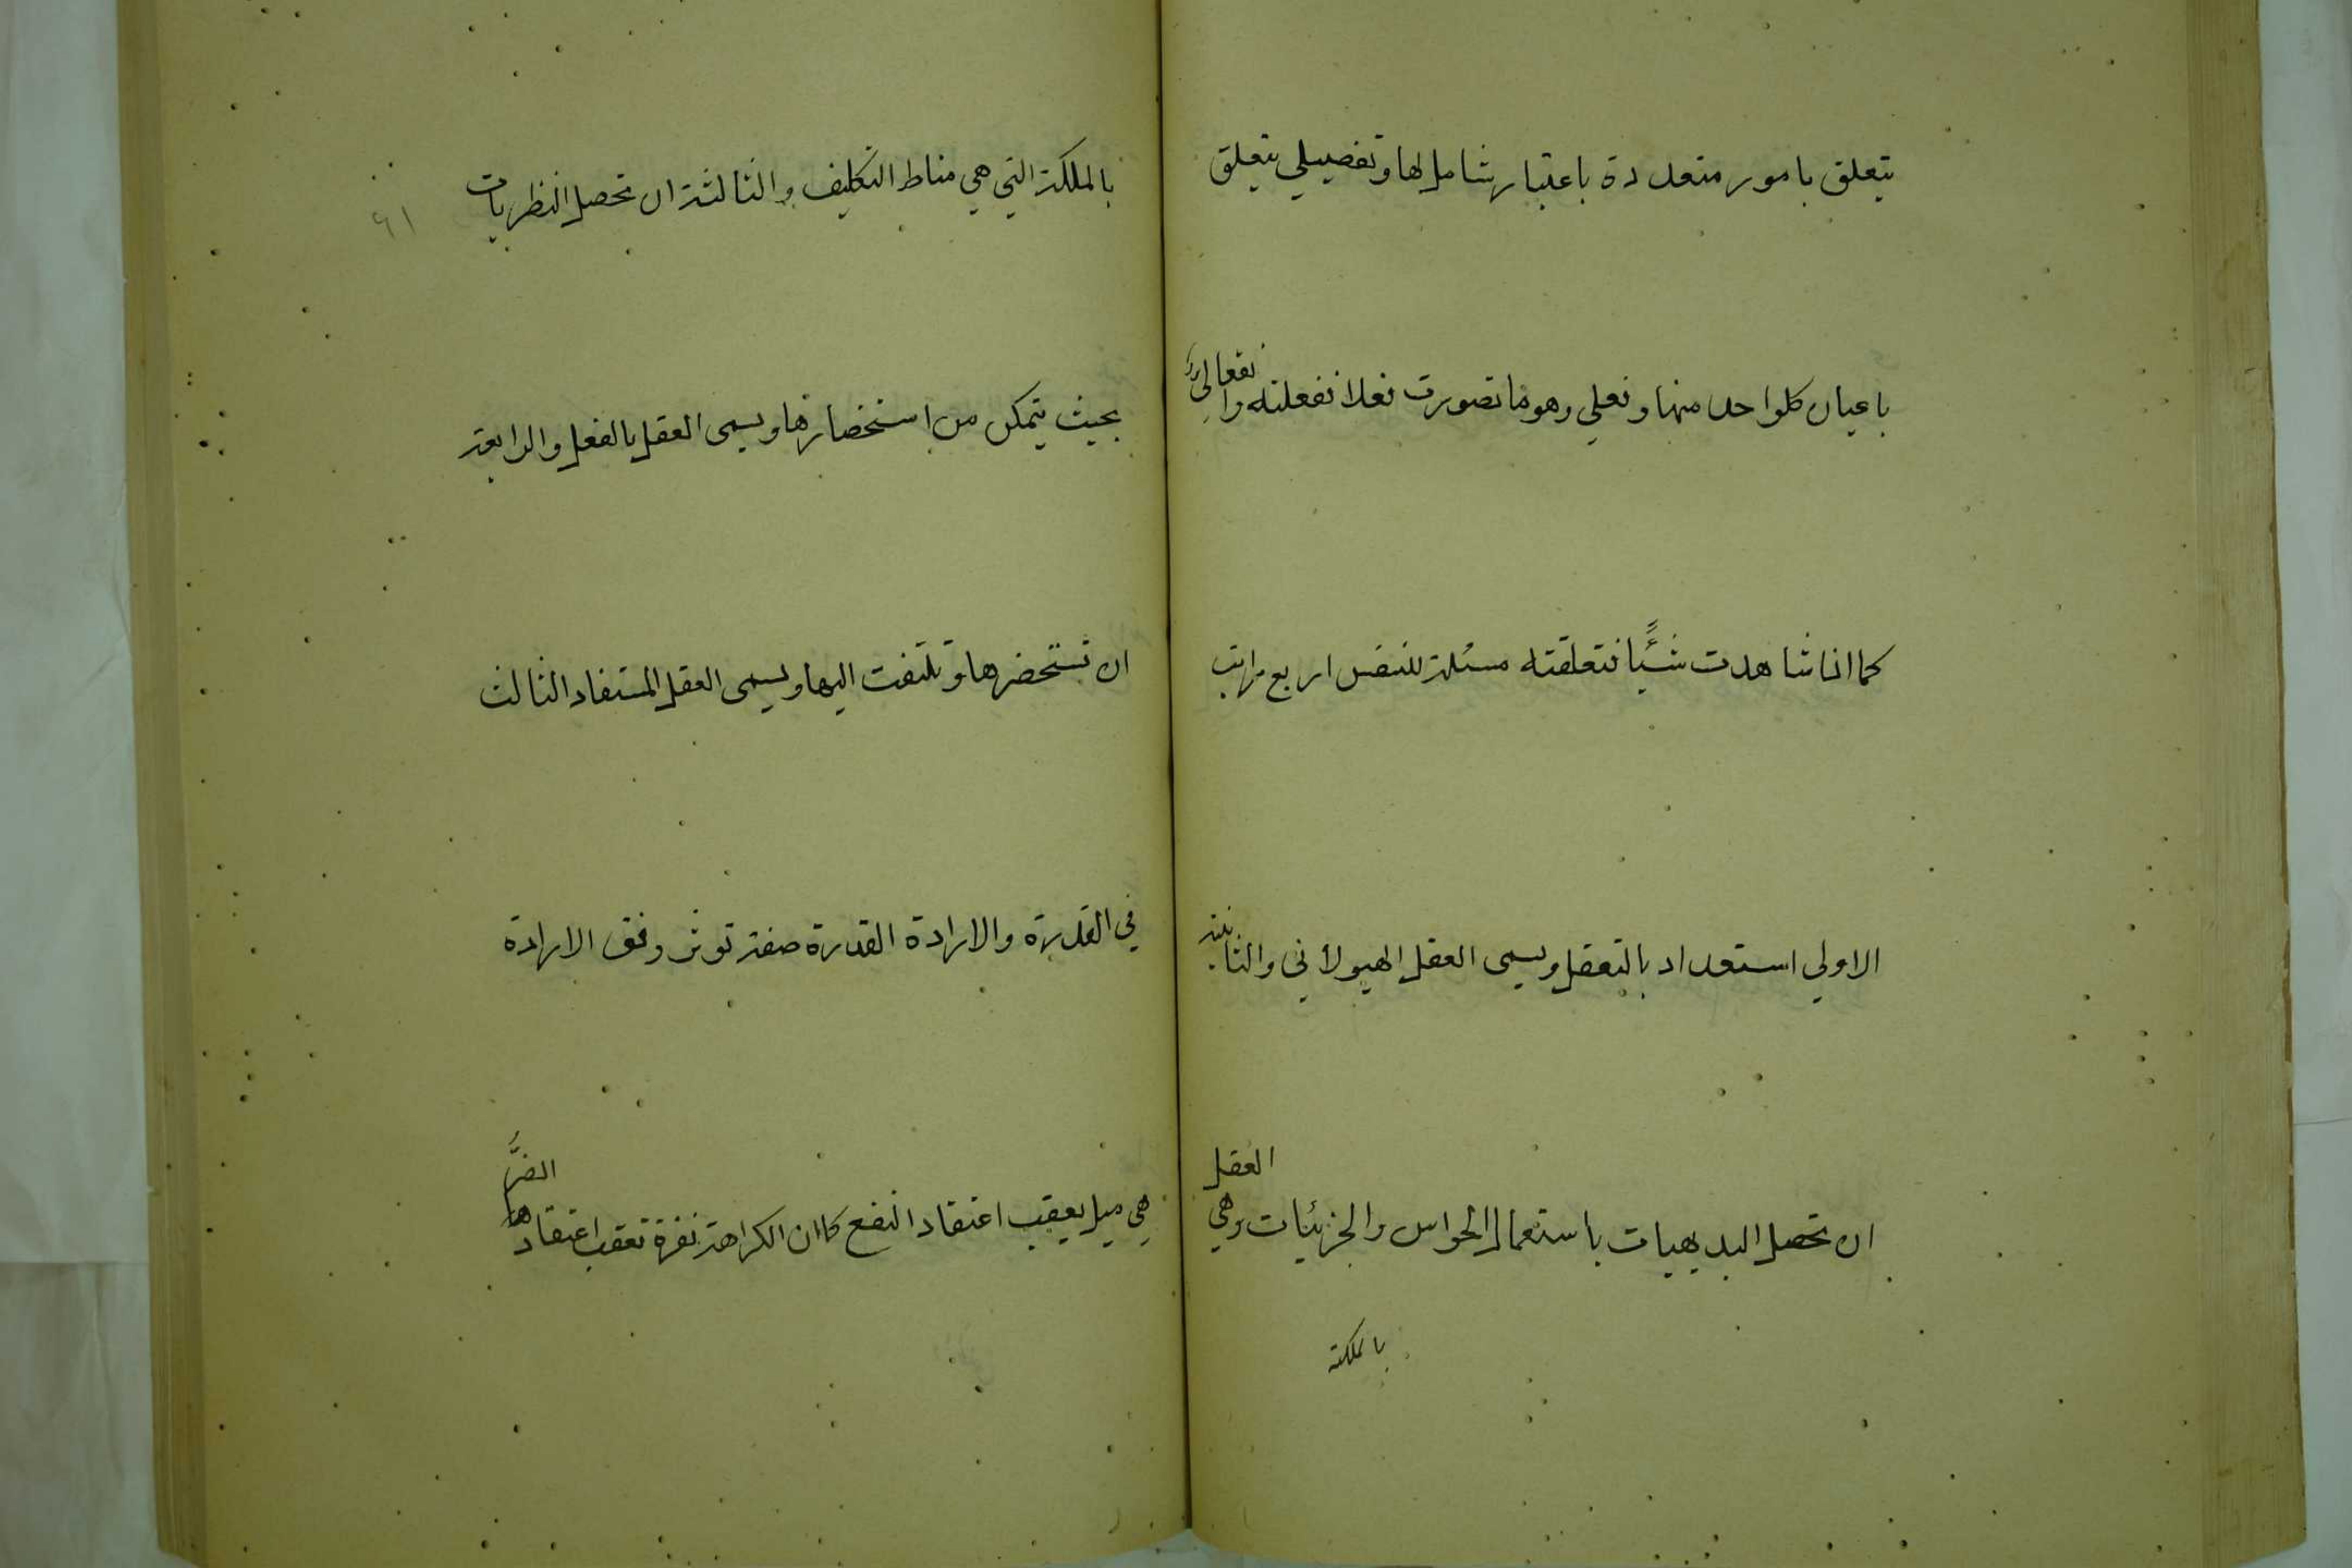 يتعلق بامور متعددة باعتبار شامل لها وتفصيلي يتعلق
باعيان كلواحد منها وفعلي وهو ما تصورت فعلا ففعلته وانفعالي
كما اذا شاهدت شيئًا فتعلقته مسئلة للنفس اربع مراتب
الاولي استعداد بالتعقل ويسمى العقل الهيولاني والثانية
ان تحصل البديهيات باستعمال الحواس والجزئيات وهي العقل
بالملكة
٦١
بالملكة التي هي مناط التكليف والثالثة ان تحصل النظريات
بحيث يتمكن من استحضارها ويسمى العقل بالفعل والرابعة
ان تستحضرها وتلتفت اليها ويسمى العقل المستفاد الثالث
في القدرة والارادة القدرة صفة توثر وفق الارادة
هي ميل يعقب اعتقاد النفع كما ان الكراهة نفرة تعقب اعتقادها الضرَّ